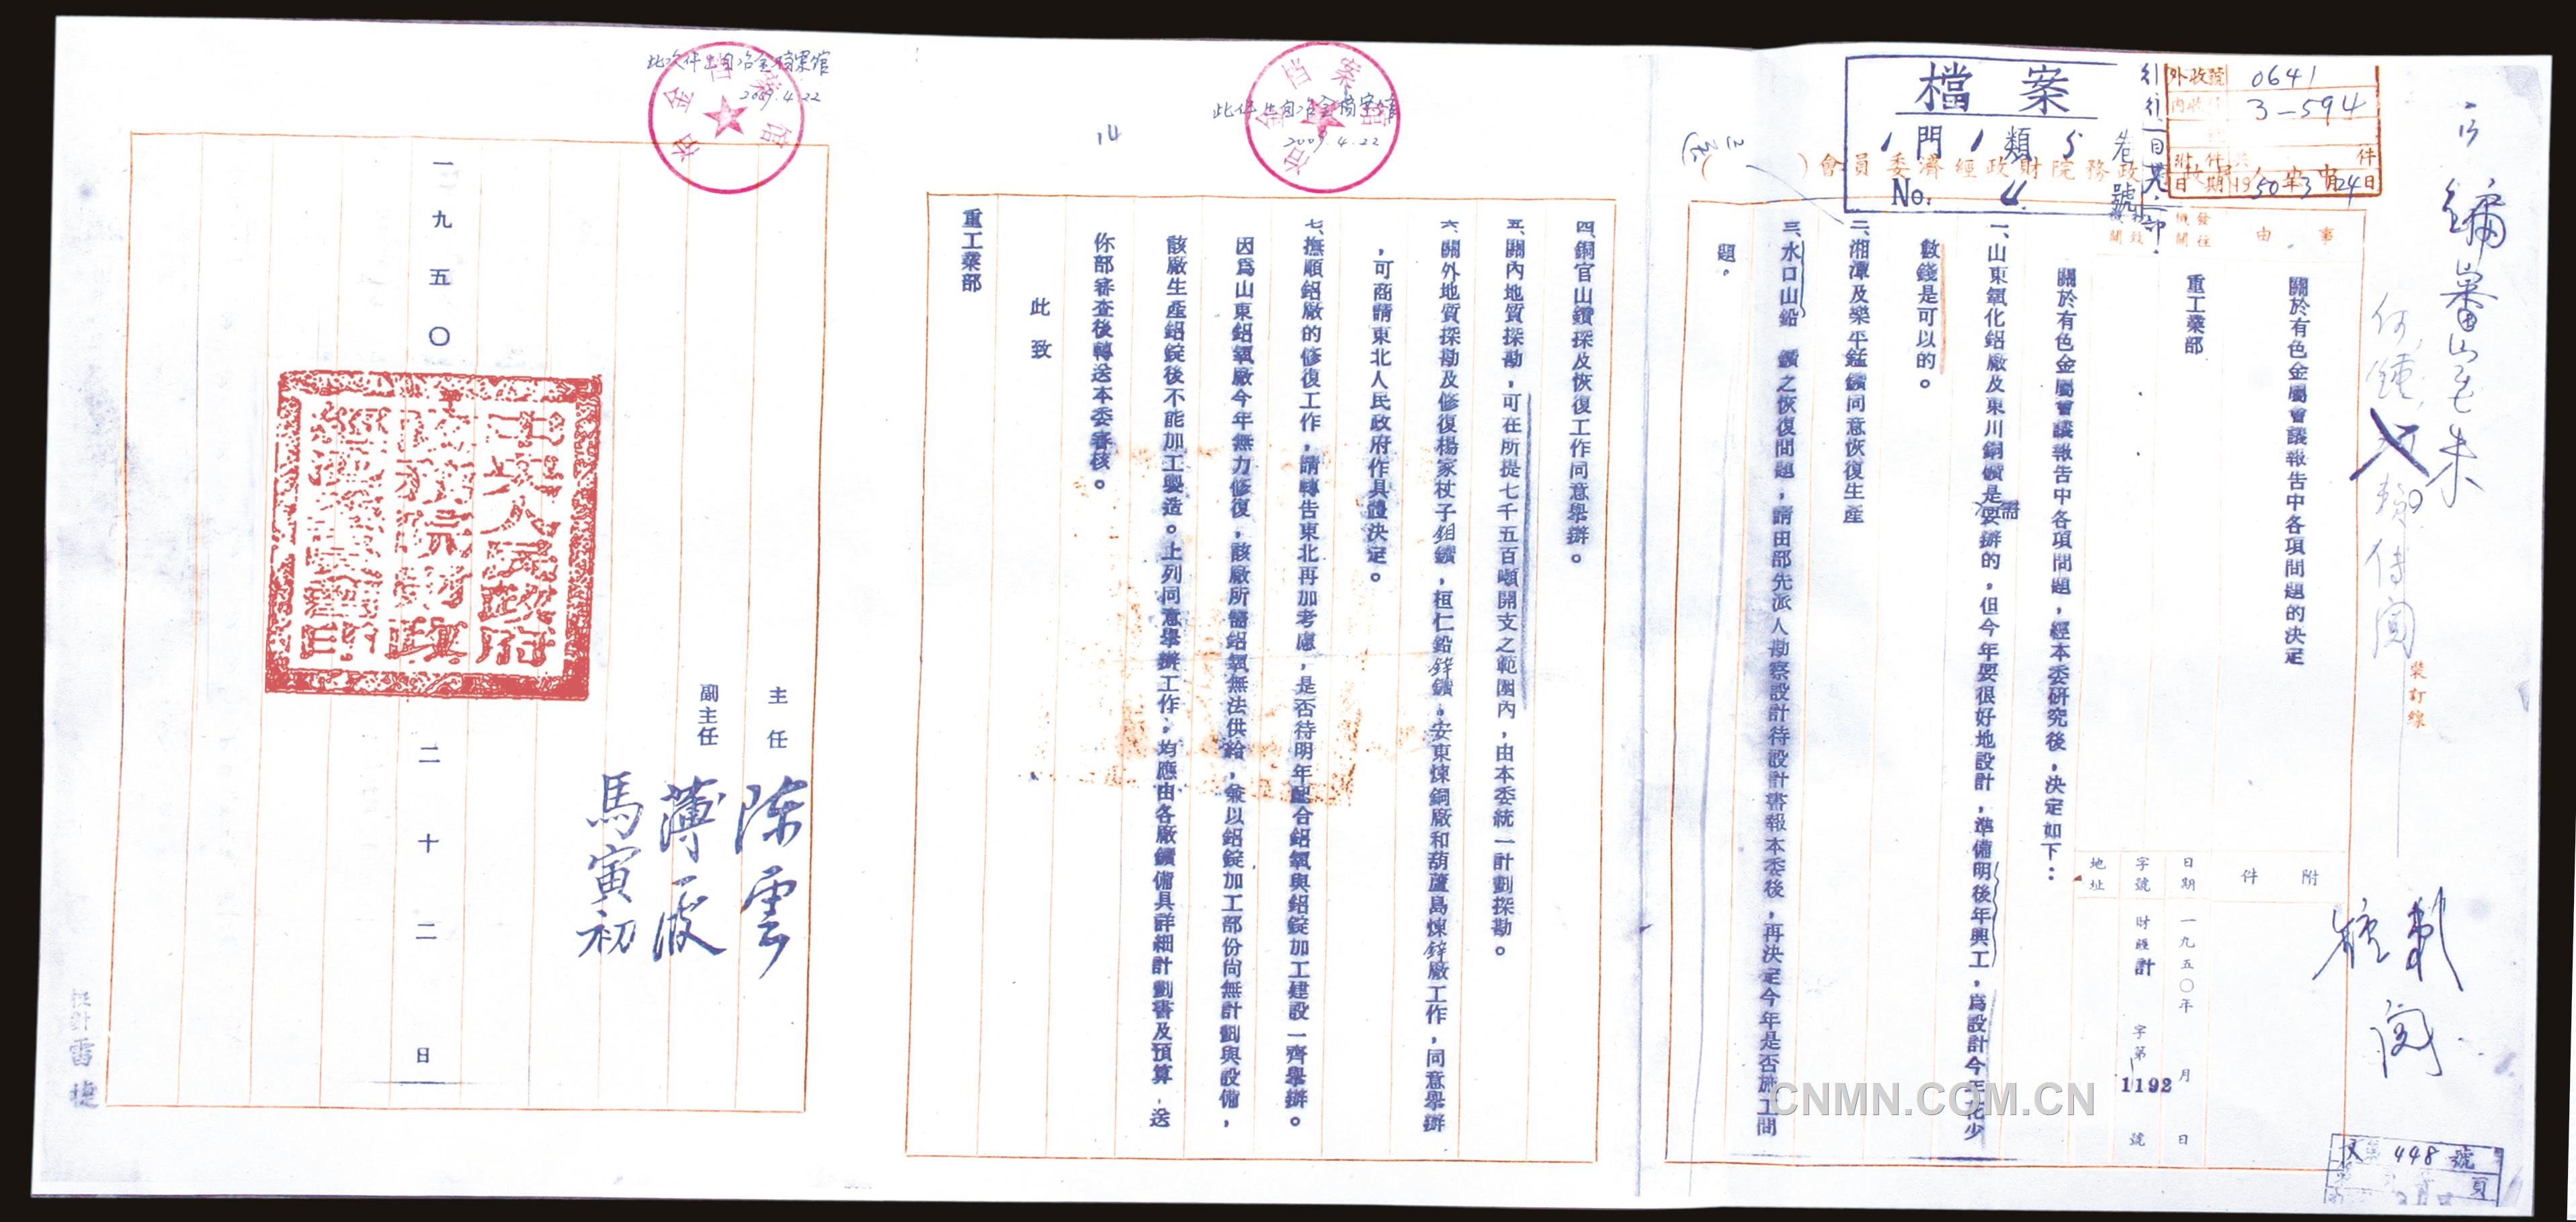 檔案
1門1類5卷
No. 4號
外收號 0641
內收 3—594
附件 共 件
日期 1950年3月24日
(　)會員委濟經政財院務政
事由
發往機關
關於有色金屬會議報告中各項問題的決定
重工業部
附件
日期 一九五〇年 月 日
字號 財經計 字第1192號
地址
關於有色金屬會議報告中各項問題，經本委研究後，決定如下：
一、山東氧化鋁廠及東川銅礦是需要辦的，但今年要很好地設計，準備明後年興工，為設計今年花少
數錢是可以的。
二、湘潭及樂平錳鑛同意恢復生產
三、水口山鉛 鑛之恢復問題，請由部先派人勘察設計待設計書報本委後，再決定今年是否施工問
題。
裝訂線
四、銅官山鑽探及恢復工作同意舉辦。
五、關內地質探勘，可在所提七千五百噸開支之範圍內，由本委統一計劃探勘。
六、關外地質探勘及修復楊家杖子鉬鑛，桓仁鉛鋅鑛，安東煉銅廠和葫蘆島煉鋅廠工作，同意舉辦
，可商請東北人民政府作具體決定。
七、撫順鋁廠的修復工作，請轉告東北再加考慮，是否待明年配合鋁氧與鋁錠加工建設一齊舉辦。
因為山東鋁氧廠今年無力修復，該廠所需鋁氧無法供給，兼以鋁錠加工部份尚無計劃與設備，
該廠生產鋁錠後不能加工製造。上列同意舉辦工作，均應由各廠鑛備具詳細計劃書及預算，送
你部審查後轉送本委審核。
此致
重工業部
主任 陳雲
副主任 薄一波
馬寅初
中央人民政府
政務院財政
經濟委員會印
一九五〇 二 十二 日
此件出自冶金檔案館
2009.4.22
冶金档案馆
此文件出自冶金档案馆
2009.4.22
冶金档案馆
14
448號
頁
校計 雷捷
CNMN.COM.CN